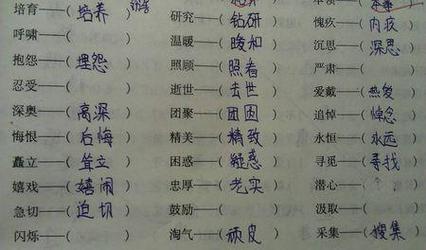 培育——(培养) 本领——(本事)
呼啸——( ) 研究——(钻研) 愧疚——(内疚)
抱怨——(埋怨) 温暖——(暖和) 沉思——(深思)
忍受——( ) 照顾——(照看) 严肃——( )
深奥——(高深) 逝世——(去世) 爱戴——(热爱)
悔恨——(后悔) 团聚——(团圆) 追悼——(悼念)
矗立——(耸立) 精美——(精致) 永恒——(永远)
嬉戏——(嬉闹) 困惑——(疑惑) 寻觅——(寻找)
急切——(迫切) 忠厚——(老实) 潜心——( )
闪烁——( ) 鼓励——( ) 汲取——( )
淘气——(顽皮) 采集——(搜集)